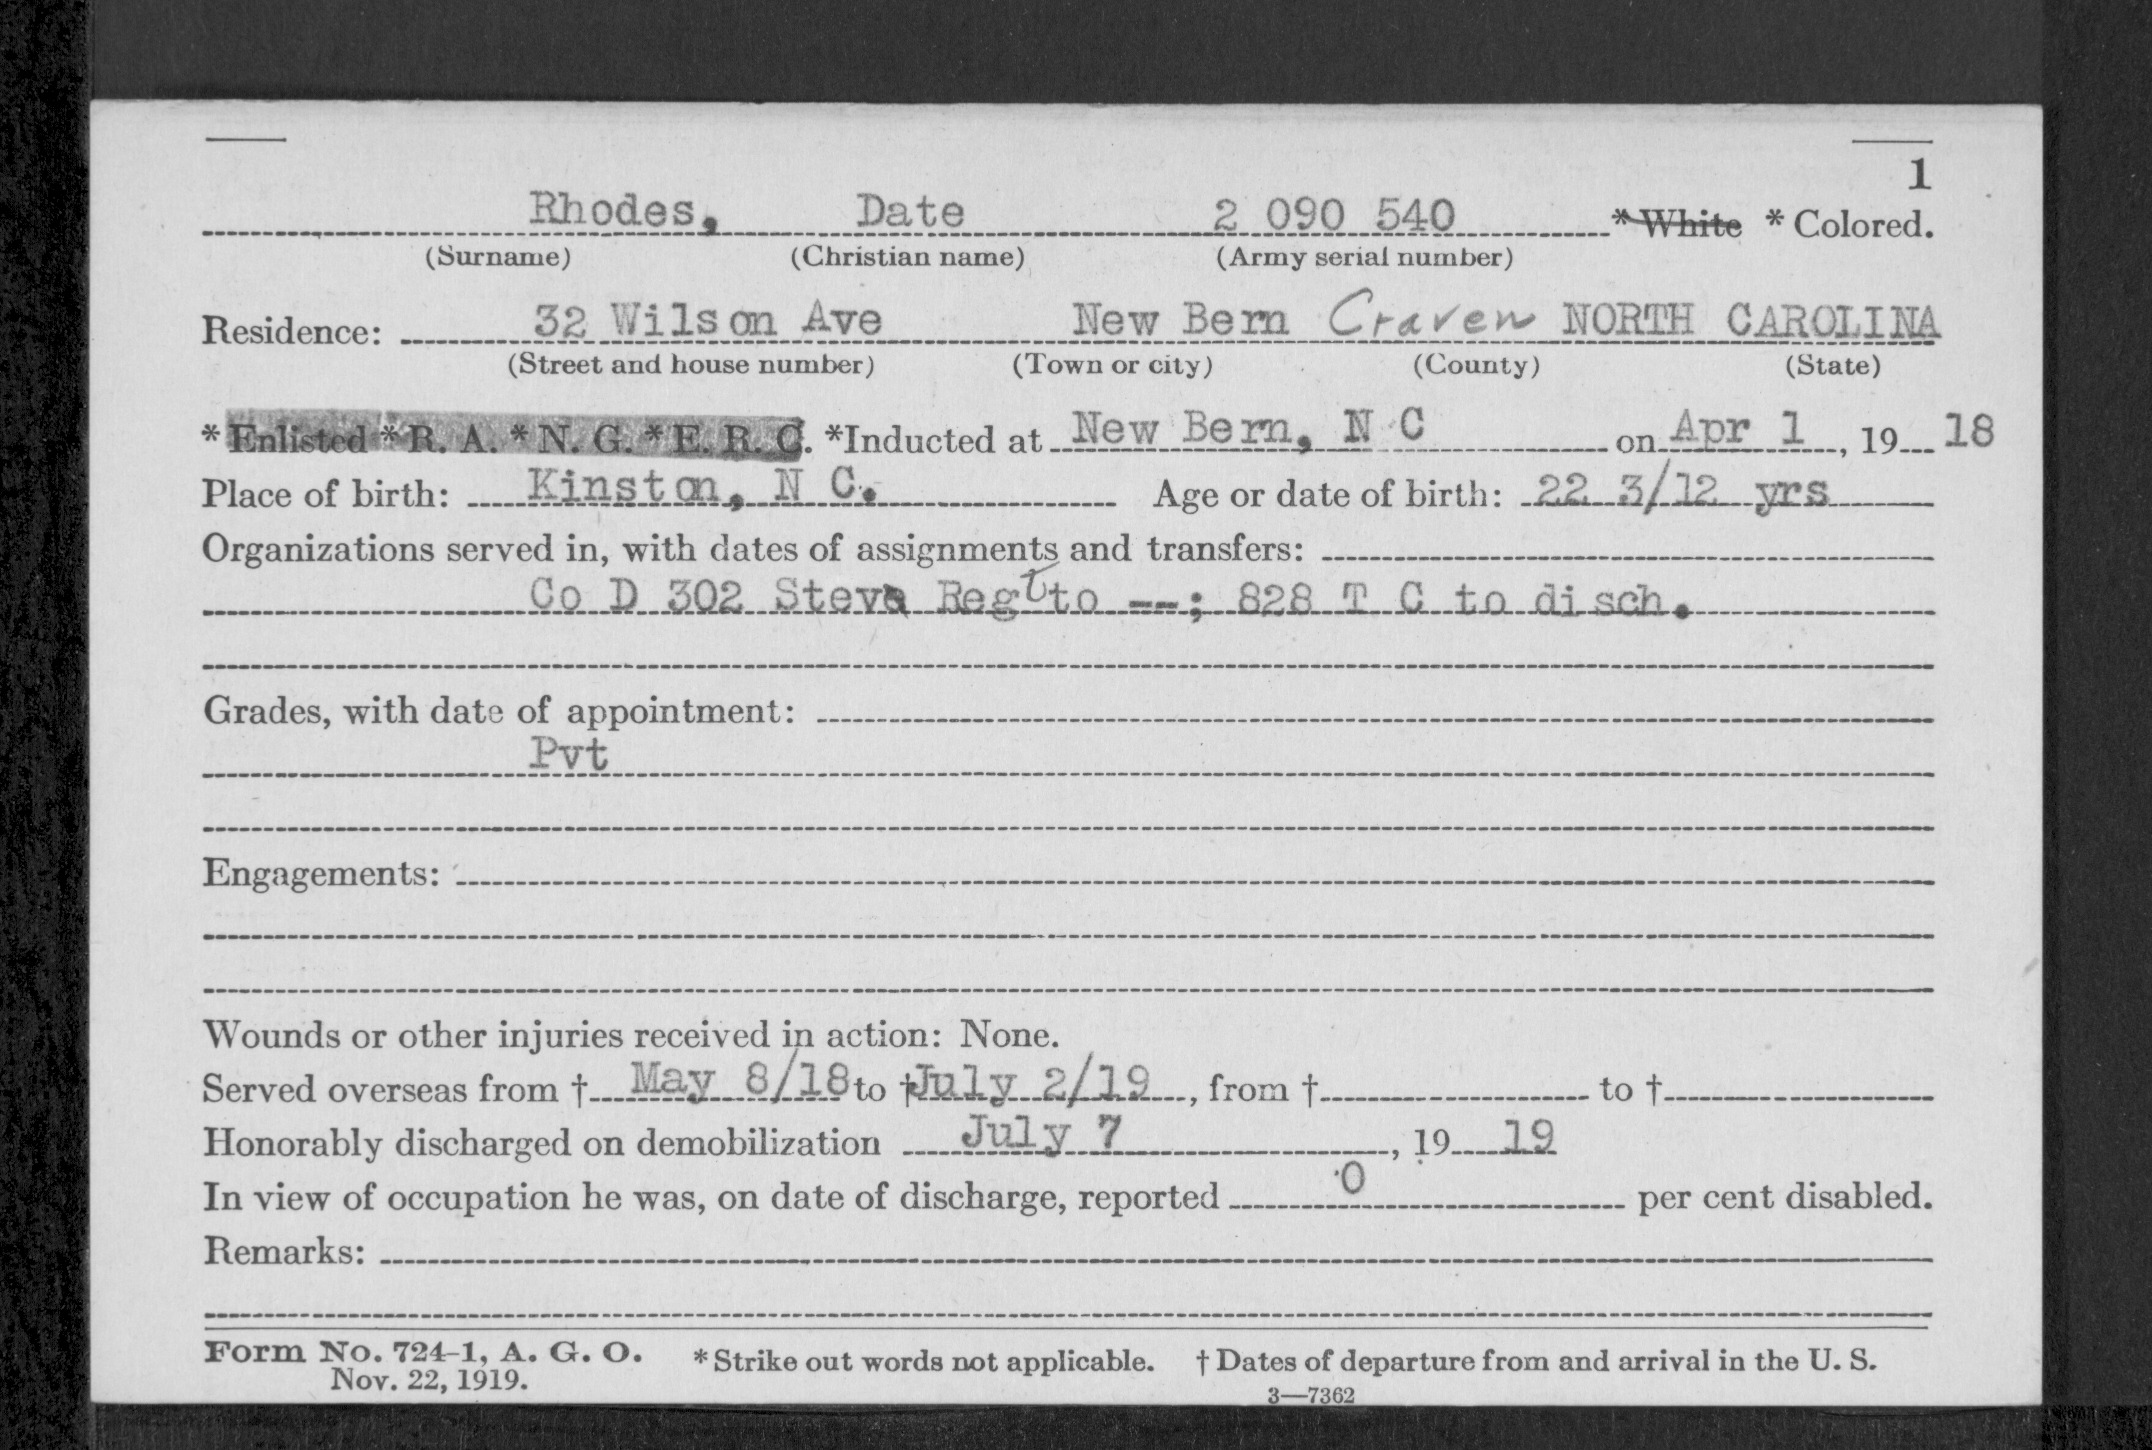 1
Rhodes, Date 2 090 540 * White * Colored.
(Surname) (Christian name) (Army serial number)
Residence: 32 Wilson Ave New Bern Craven NORTH CAROLINA
(Street and house number) (Town or city) (County) (State)
* Enlisted * R. A. * N. G. * E. R. C. *Inducted at New Bern, N C on Apr 1, 19 18
Place of birth: Kinston, N C. Age or date of birth: 22 3/12 yrs
Organizations served in, with dates of assignments and transfers:
Co D 302 Steve Regt to --; 828 T C to disch.
Grades, with date of appointment:
Pvt
Engagements:
Wounds or other injuries received in action: None.
Served overseas from † May 8/18 to † July 2/19, from † to †
Honorably discharged on demobilization July 7, 19 19
In view of occupation he was, on date of discharge, reported 0 per cent disabled.
Remarks:
Form No. 724-1, A. G. O. * Strike out words not applicable. † Dates of departure from and arrival in the U. S.
Nov. 22, 1919.
3—7362